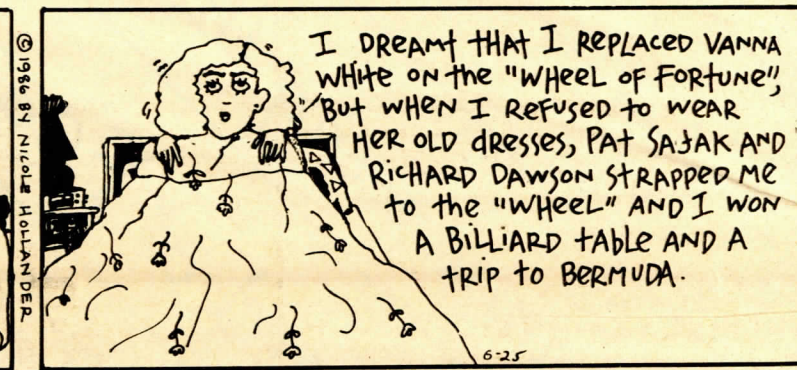 © 1986 BY NICOLE HOLLANDER
I DREAMT THAT I REPLACED VANNA
WHITE ON THE "WHEEL OF FORTUNE",
BUT WHEN I REFUSED TO WEAR
HER OLD DRESSES, PAT SAJAK AND
RICHARD DAWSON STRAPPED ME
TO THE "WHEEL" AND I WON
A BILLIARD TABLE AND A
TRIP TO BERMUDA.
6-25